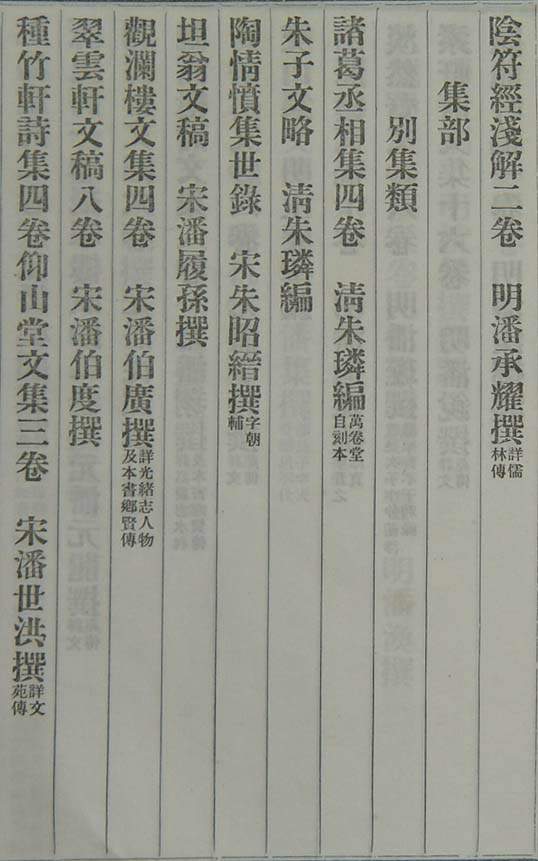 陰符經淺解二卷　明潘承耀撰詳儒林傳
集部
別集類
諸葛丞相集四卷　清朱璘編萬卷堂自刻本
朱子文略　清朱璘編
陶情憤集世錄　宋朱昭縉撰字朝輔
坦翁文稿　宋潘履孫撰
觀瀾樓文集四卷　宋潘伯廣撰詳光緒志人物及本書鄉賢傳
翠雲軒文稿八卷　宋潘伯度撰
種竹軒詩集四卷仰山堂文集三卷　宋潘世洪撰詳文苑傳